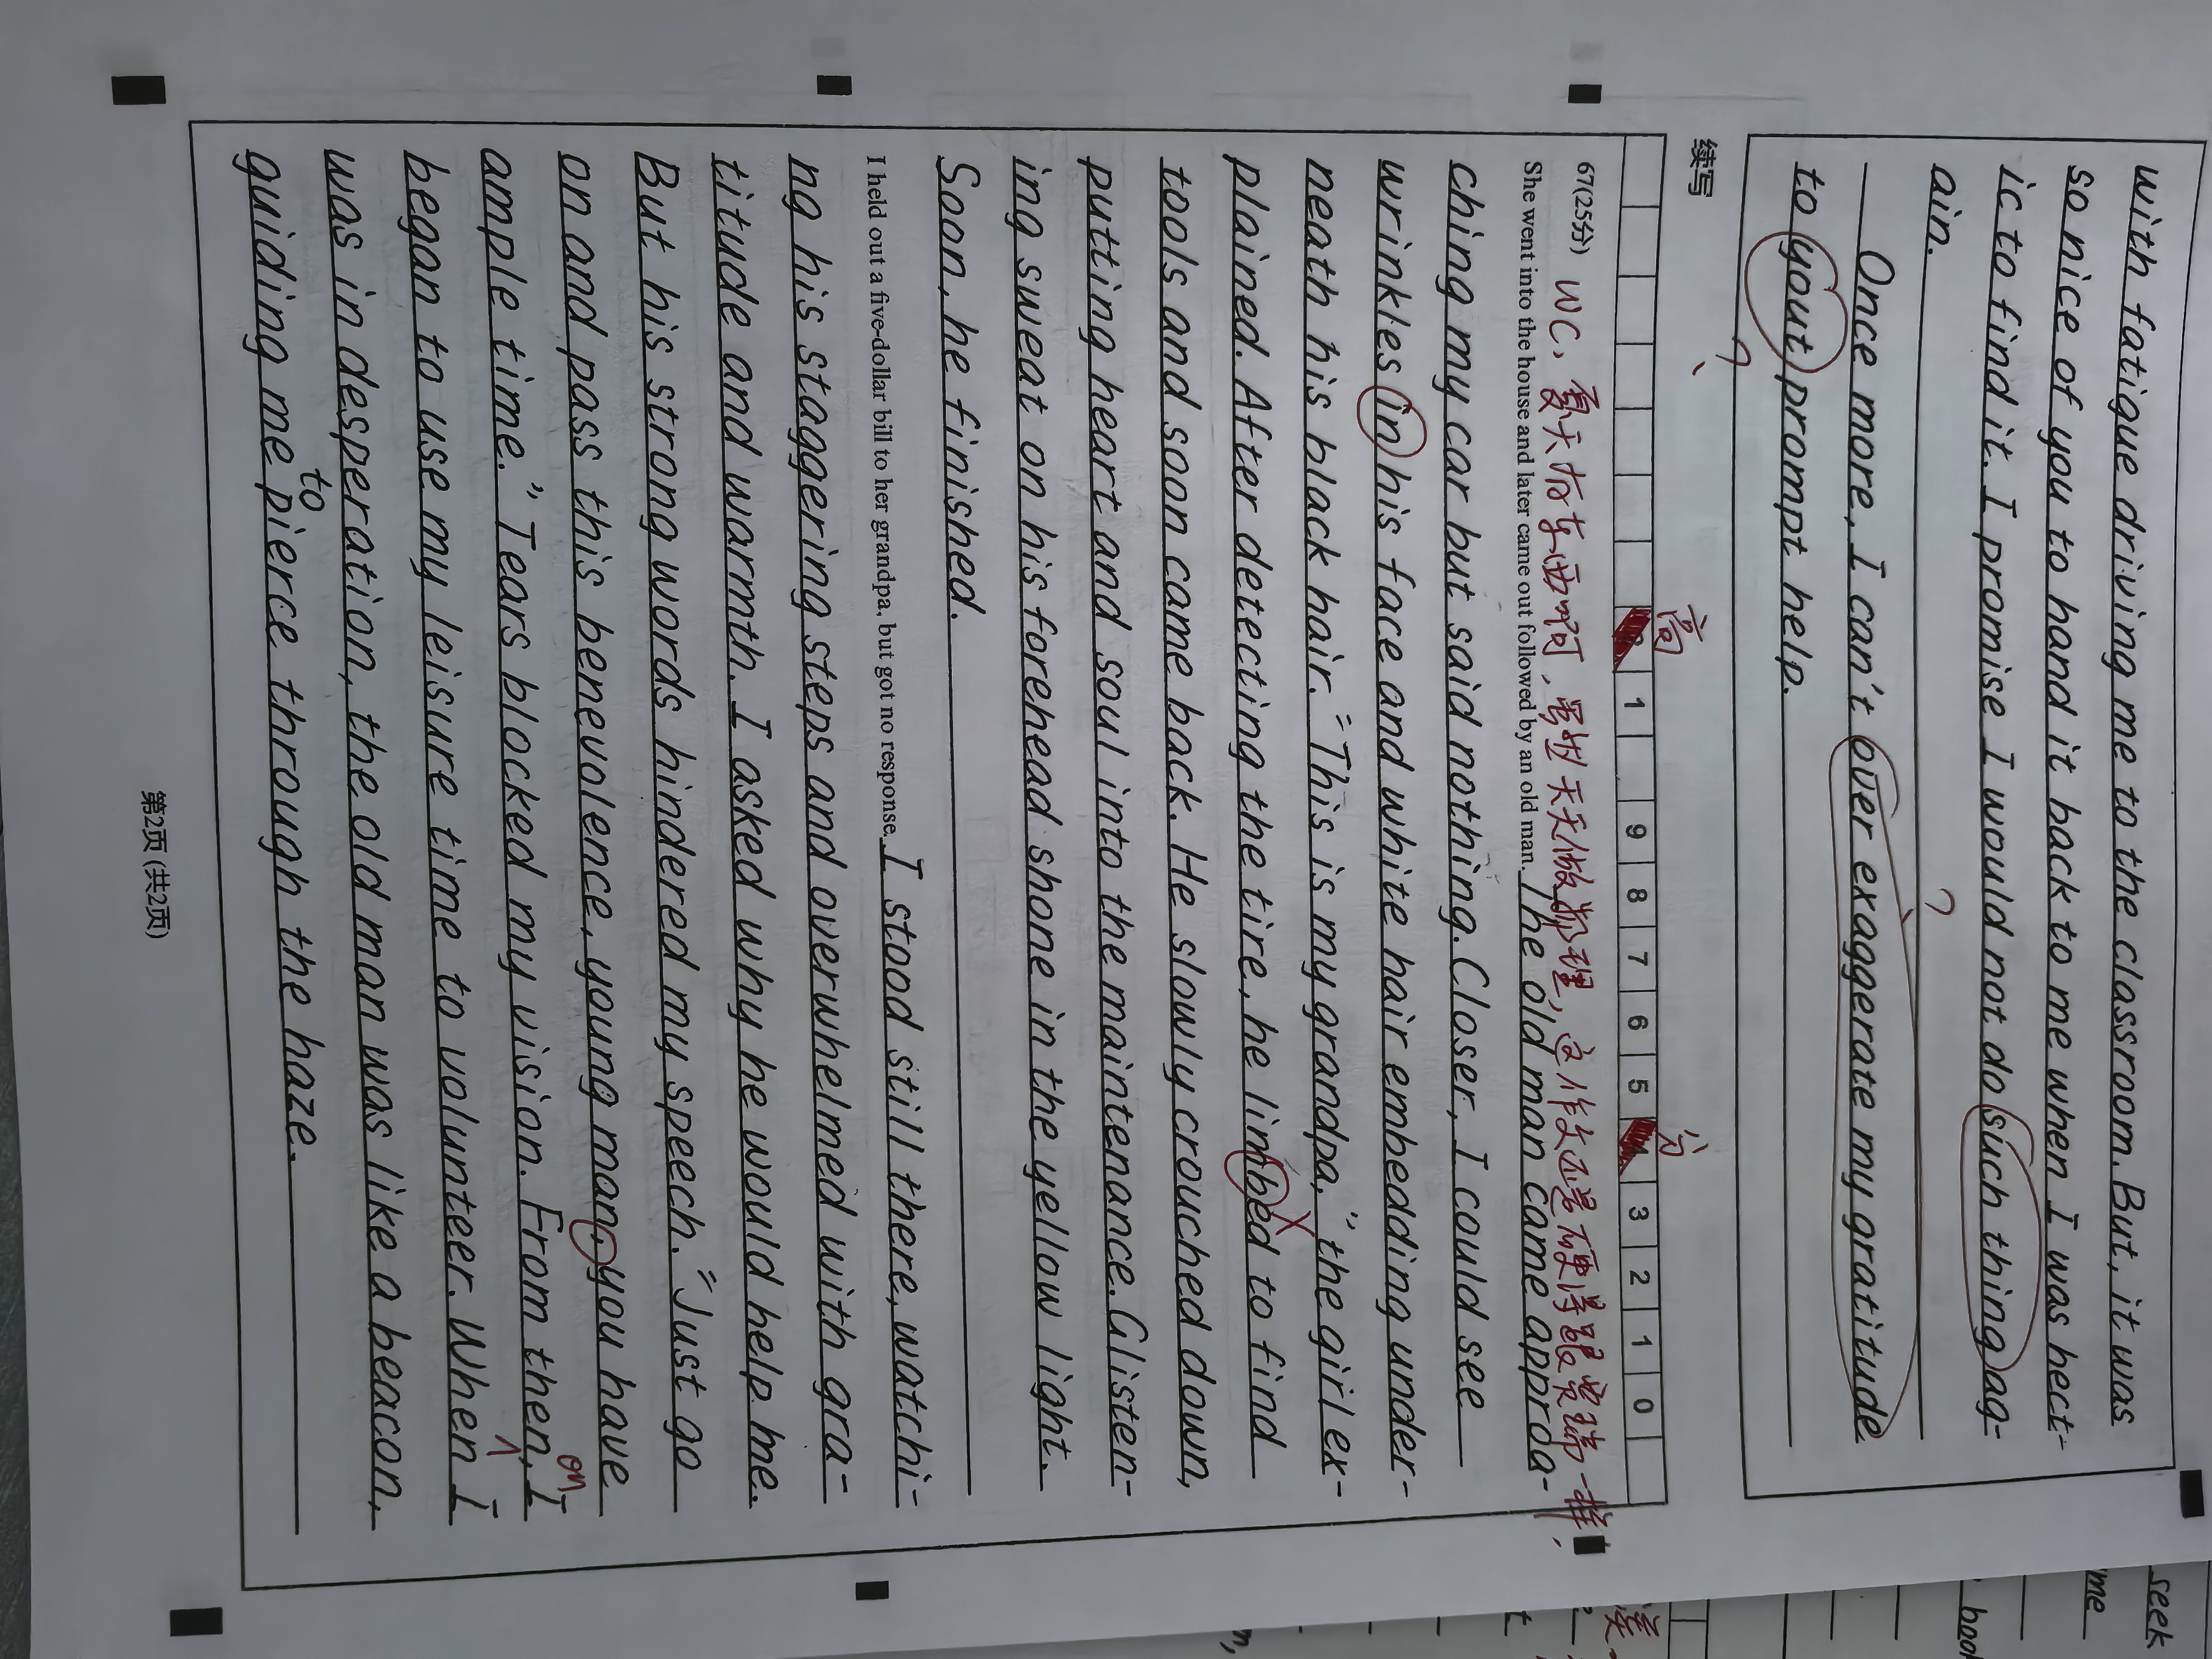 with fatigue driving me to the classroom. But, it was
so nice of you to hand it back to me when I was hect-
ic to find it. I promise I would not do such thing ag-
ain.
?
Once more, I can't over exaggerate my gratitude
to yout prompt help.
?
续写
高
分
1 9 8 7 6 5 3 2 1 0
67(25分) WC, 夏天有东西啊, 虽然天天做
She went into the house and later came out followed by an old man. The old man came approa-
ching my car but said nothing. Closer, I could see
wrinkles in his face and white hair embedding under-
neath his black hair. "This is my grandpa," the girl ex-
plained. After detecting the tire, he linbed to find
tools and soon came back. He slowly crouched down,
putting heart and soul into the maintenance. Glisten-
ing sweat on his forehead shone in the yellow light.
Soon, he finished.
I held out a five-dollar bill to her grandpa, but got no response. I stood still there, watchi-
ng his staggering steps and overwhelmed with gra-
titude and warmth. I asked why he would help me.
But his strong words hindered my speech. "Just go
on and pass this benevolence, young man, you have
on
ample time." Tears blocked my vision. From then, I
began to use my leisure time to volunteer. When I
was in desperation, the old man was like a beacon,
to
guiding me pierce through the haze.
第2页 (共2页)
seek
me
book